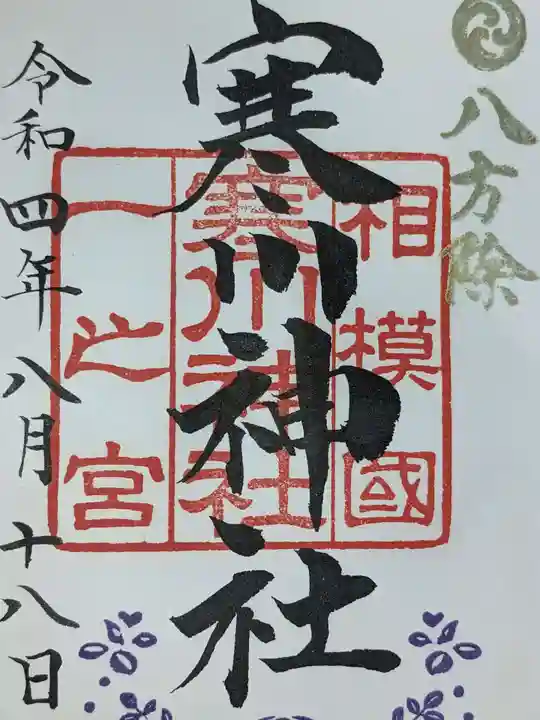 八方除
相模國
寒川神社
寒川神社
一之宮
令和四年八月十八日